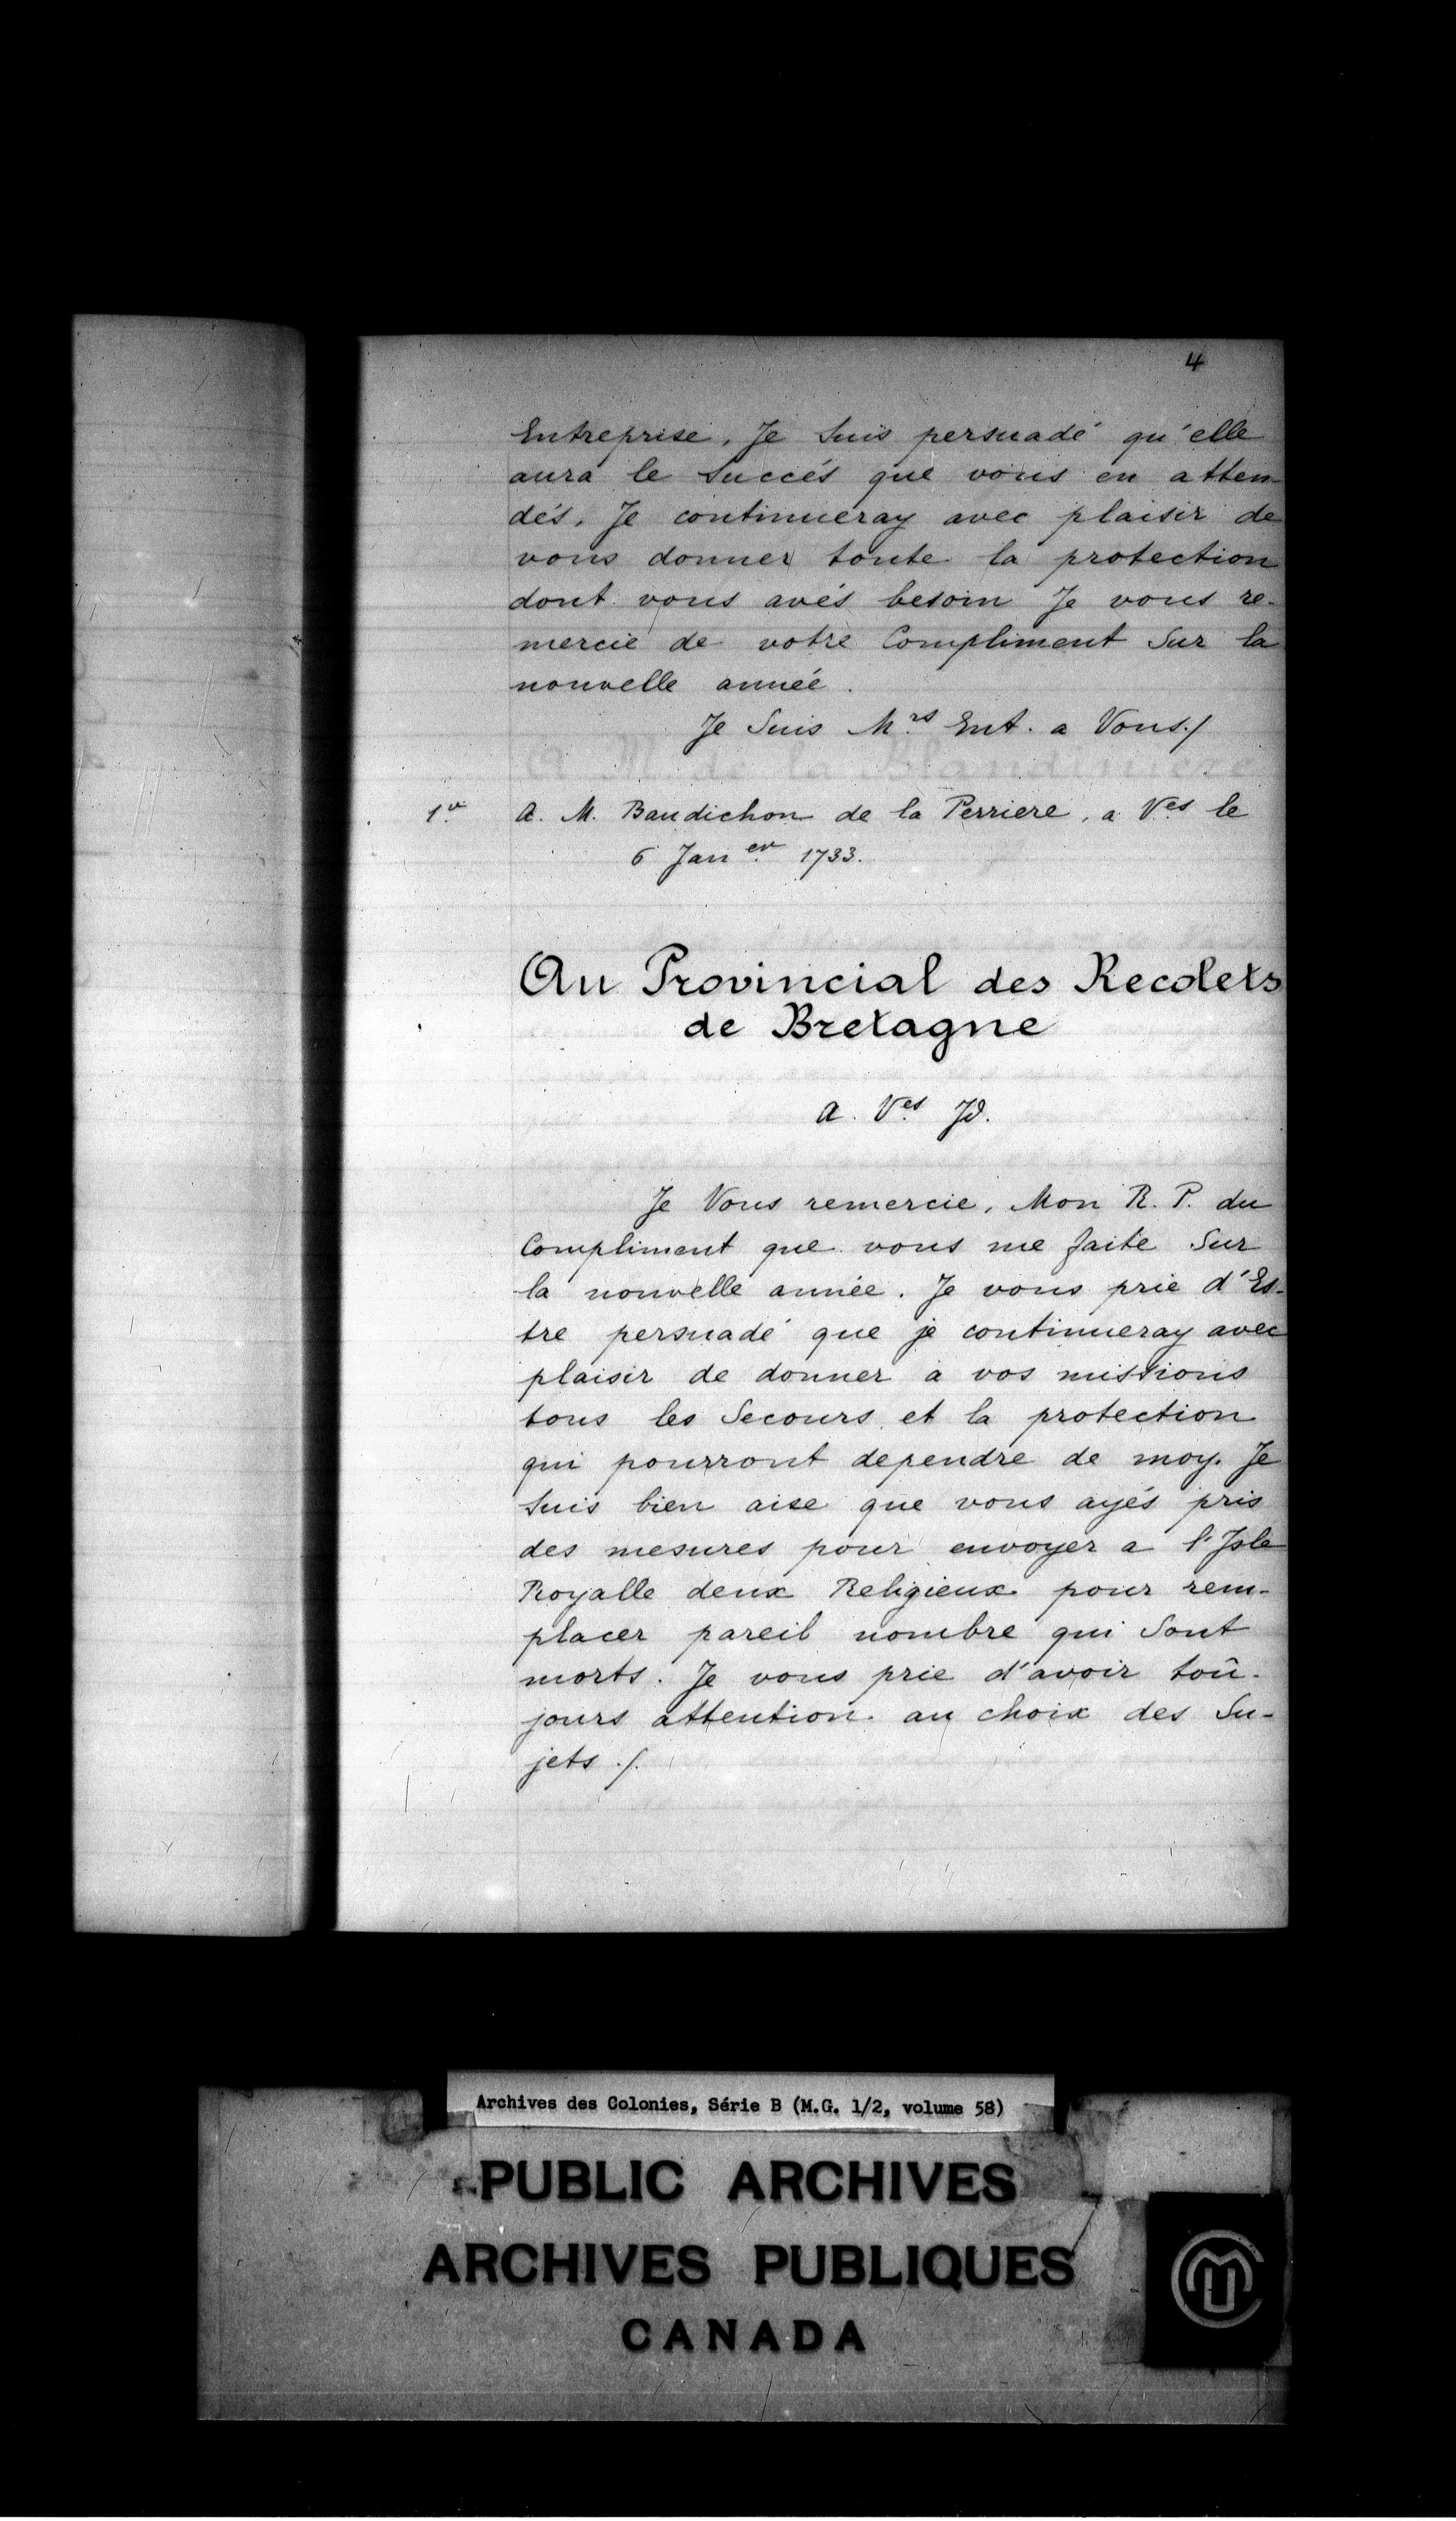 4
Entreprise. Je Suis persuadé qu'elle
aura le Succés que vous en atten-
dés. Je continueray avec plaisir de
vous donner toute la protection
dont vous avés besoin Je vous re-
mercie de votre Compliment Sur la
nouvelle année.
Je Suis Mrs Ent. a Vous./
1.º A. M. Baudichon de la Perriere, a Ves le
6 Janer 1733.
Au Provincial des Recolets
de Bretagne
A. Ves Jd.
Je Vous remercie, Mon R. P. du
Compliment que vous me faite Sur
la nouvelle année. Je vous prie d'Es-
tre persuadé que je continueray avec
plaisir de donner a vos missions
tous les Secours et la protection
qui pourront dependre de moy. Je
Suis bien aise que vous ayés pris
des mesures pour envoyer a l'Isle
Royalle deux Religieux pour rem-
placer pareil nombre qui Sont
morts. Je vous prie d'avoir toû-
jours attention au choix des Su-
jets ./.
Archives des Colonies, Série B (M.G. 1/2, volume 58)
PUBLIC ARCHIVES
ARCHIVES PUBLIQUES
CANADA